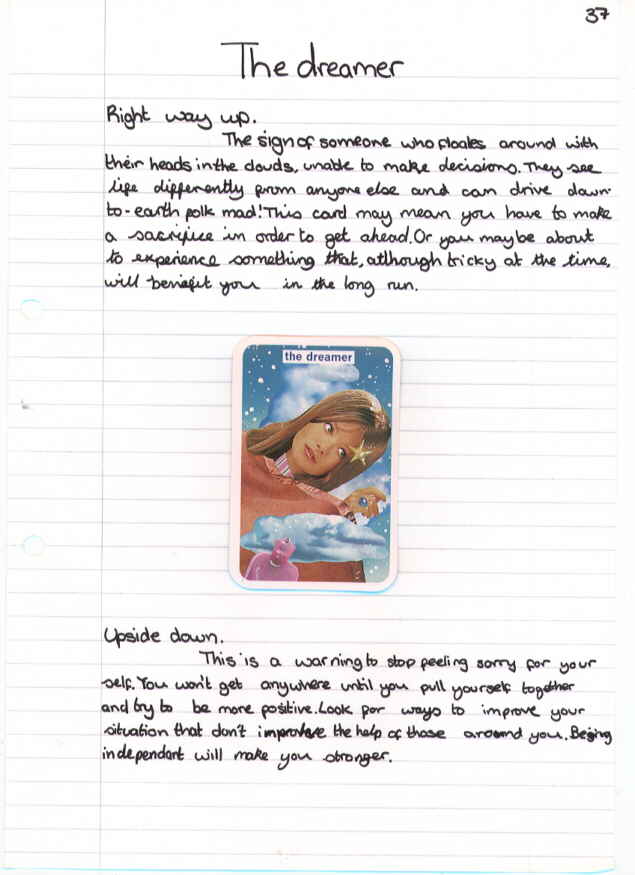 37
The dreamer
Right way up.
The sign of someone who floates around with
their heads in the clouds, unable to make decisions. They see
life differently from anyone else and can drive down-
to-earth folk mad! This card may mean you have to make
a sacrifice in order to get ahead. Or you may be about
to experience something that, although tricky at the time,
will benefit you in the long run.
the dreamer
Upside down.
This is a warning to stop feeling sorry for your
self. You won't get anywhere until you pull yourself together
and try to be more positive. Look for ways to improve your
situation that don't the help of those around you. Being
independant will make you stronger.